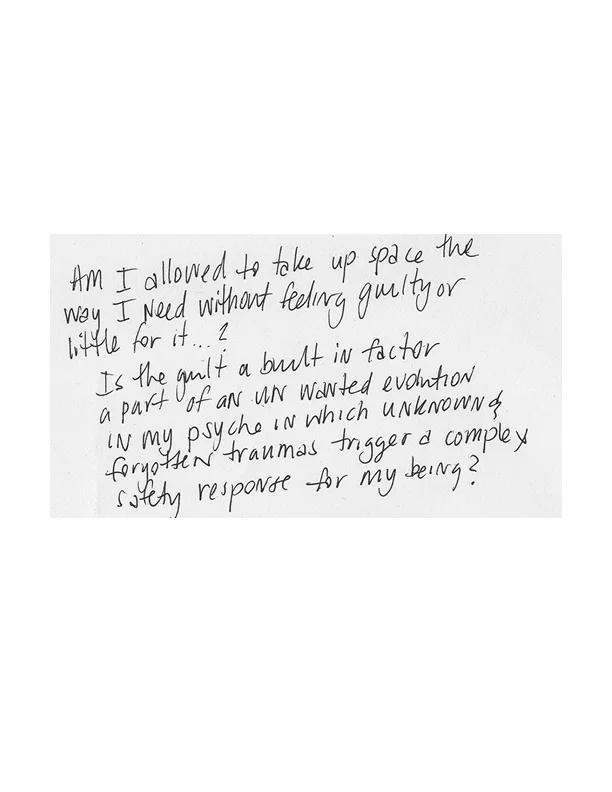 Am I allowed to take up space the
way I need without feeling guilty or
little for it...?
Is the guilt a built in factor
a part of an un wanted evolution
in my psyche in which unknown &
forgotten traumas trigger a complex
safety response for my being?